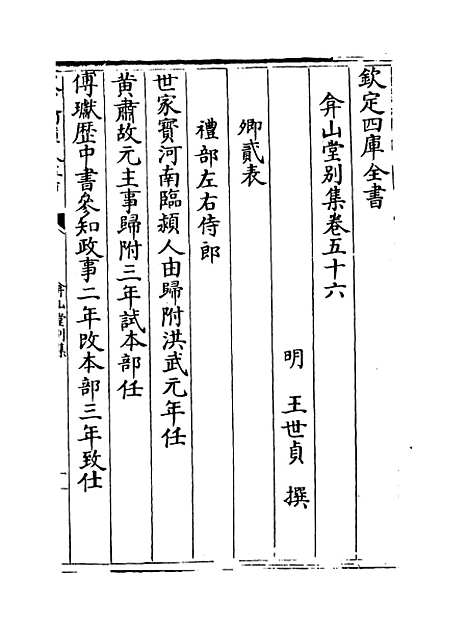 欽定四庫全書
弇山堂别集卷五十六
明 王世貞 撰
卿貳表
禮部左右侍郎
世家寳河南臨潁人由歸附洪武元年任
黄肅故元主事歸附三年試本部任
傅瓛歴中書參知政事二年改本部三年致仕
弇山堂别集